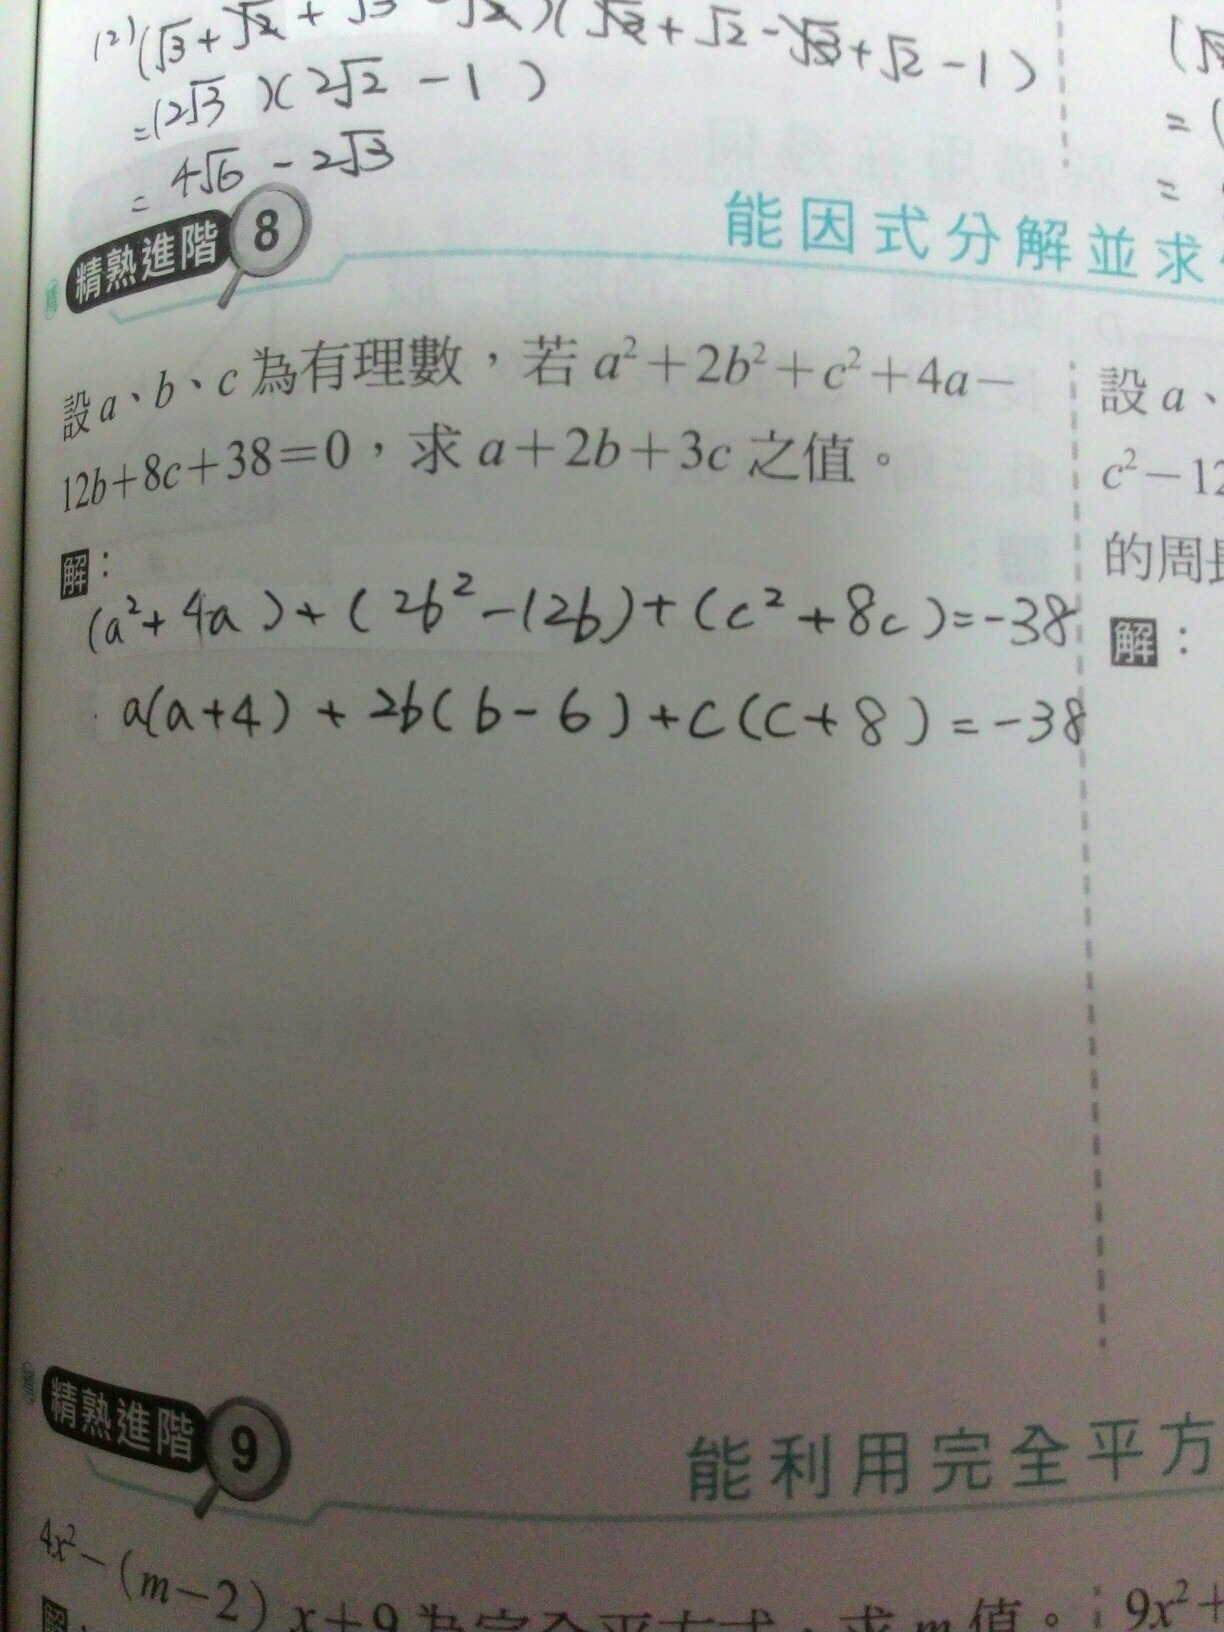 (2)(√3+√2+√3-√2)(√3+√2-√3+√2-1)
=(2√3)(2√2-1)
=4√6-2√3
=(
=
精熟進階 8
能因式分解並求
設a、b、c為有理數,若a²+2b²+c²+4a-
12b+8c+38=0,求a+2b+3c之值。
解:
(a²+4a)+(2b²-12b)+(c²+8c)=-38
a(a+4)+2b(b-6)+c(c+8)=-38
設a、
c²-12
的周長
解:
精熟進階 9
能利用完全平方
4x²-(m-2)x+9為完全平方式,求m值。
9x²+